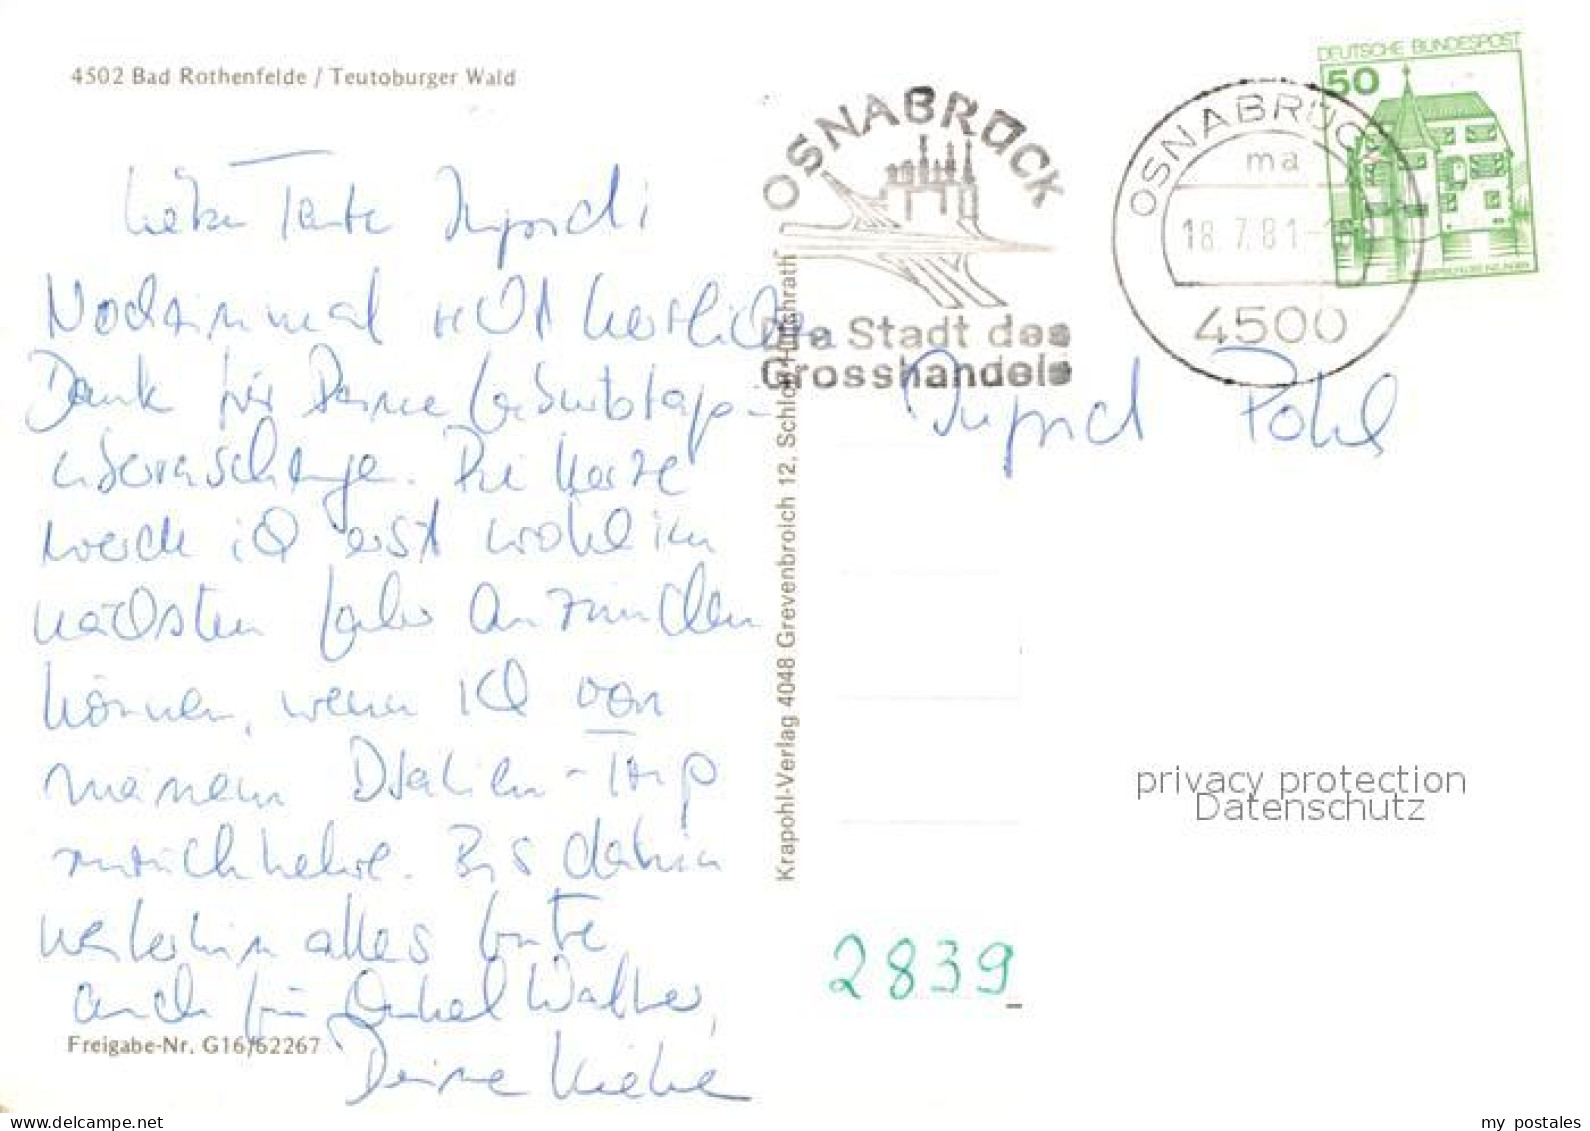 4502 Bad Rothenfelde / Teutoburger Wald
DEUTSCHE BUNDESPOST
50
OSNABRÜCK
Die Stadt des
Grosshandels
OSNABRÜCK
ma
18.7.81
4500
Liebe Tante Ingrid!
Nocheinmal recht herzlichen
Dank für Deine Geburtstags-
überraschung. Die Kerze
werde ich erst wohl im
nächsten Jahr anzünden
können, wenn ich von
meinem Italien-Trip
zurückkehre. Bis dahin
weiterhin alles Gute
auch für Onkel Walter,
Deine
Ingrid Pohl
Krapohl-Verlag 4048 Grevenbroich 12, Schloß Hülchrath
privacy protection
Datenschutz
2839
Freigabe-Nr. G16/62267
www.delcampe.net
my_postales